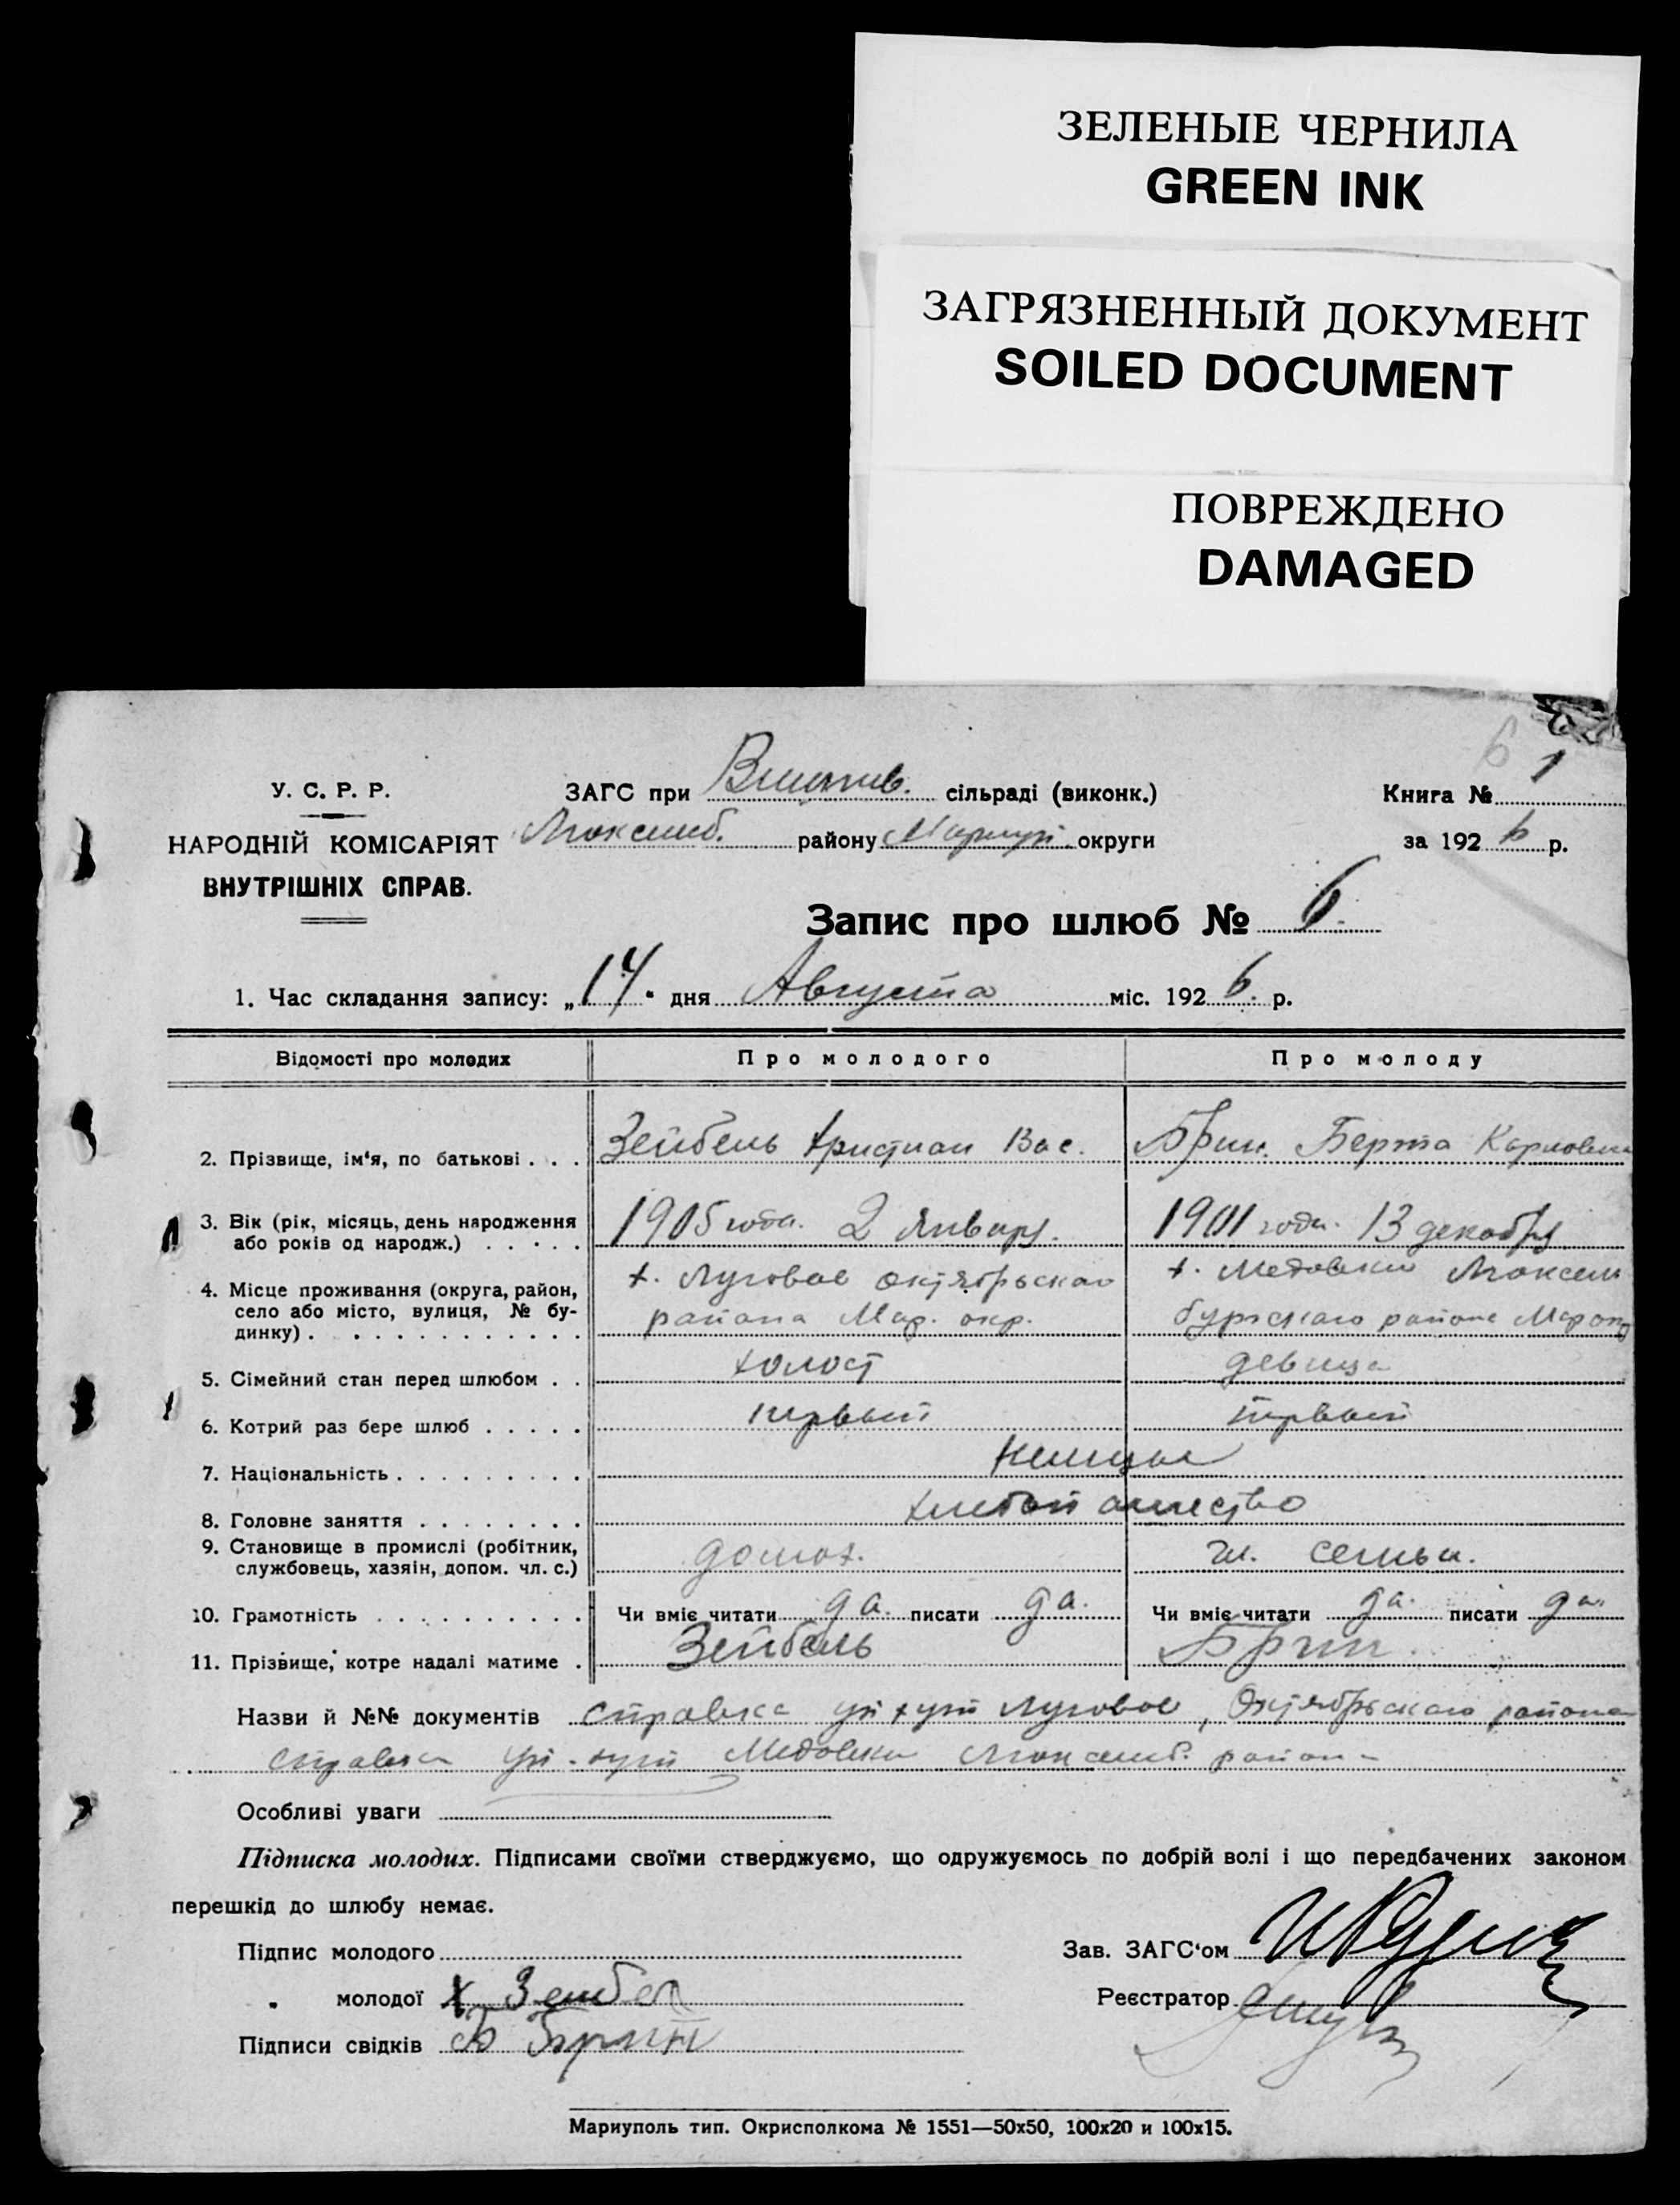 ЗЕЛЕНЫЕ ЧЕРНИЛА
GREEN INK
ЗАГРЯЗНЕННЫЙ ДОКУМЕНТ
SOILED DOCUMENT
ПОВРЕЖДЕНО
DAMAGED
6 1
У. С. Р. Р.
НАРОДНІЙ КОМІСАРІЯТ
ВНУТРІШНІХ СПРАВ.
ЗАГС при сільраді (виконк.)
Люксемб. району Мариуп. округи
Книга №
за 192 6 р.
Запис про шлюб № 6.
1. Час складання запису: „14" дня Августа міс. 192 6. р.
Відомості про молодих Про молодого Про молоду
2. Прізвище, ім'я, по батькові . . . Зейбель Христиан Вас. Брин. Берта Карловна
3. Вік (рік, місяць, день народження
або років од народж.) . . . . . 1905 года. 2 Января. 1901 года. 13 декабря
4. Місце проживання (округа, район,
село або місто, вулиця, № бу-
динку) . . . . . . . . . . . .
х. Луговое октябрьского
района Мар. окр.
х. Медовка Люксем
бургскаго района Мар окр
5. Сімейний стан перед шлюбом . . холост девица
6. Котрий раз бере шлюб . . . . . первый первый
7. Національність . . . . . . . . . немцы
8. Головне заняття . . . . . . . . хлебопашество
9. Становище в промислі (робітник,
службовець, хазяін, допом. чл. с.) домох. чл. семьи.
10. Грамотність . . . . . . . . . . Чи вміє читати да. писати да. Чи вміє читати да. писати да.
11. Прізвище, котре надалі матиме . Зейбель Брин.
Назви й №№ документів справка хут Луговое, Октябрьского района
справка хут Медовки Люксемб. района
Особливі уваги
Підписка молодих. Підписами своїми стверджуємо, що одружуємось по добрій волі і що передбачених законом
перешкід до шлюбу немає.
Підпис молодого
" молодої Х Зейбел
Підписи свідків Б Брин
Зав. ЗАГС'ом
Реєстратор
Мариуполь тип. Окрисполкома № 1551—50х50, 100х20 и 100х15.